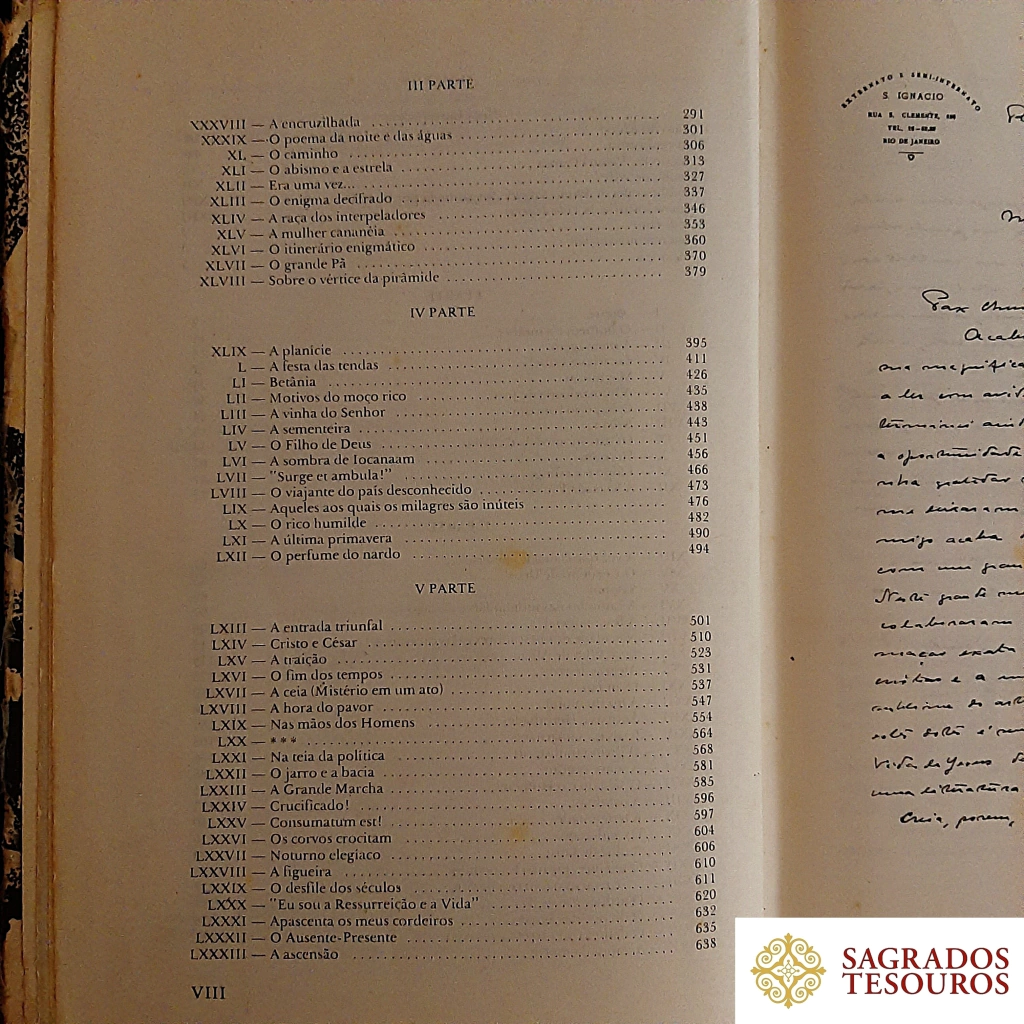 III PARTE
XXXVIII — A encruzilhada 291
XXXIX — O poema da noite e das águas 301
XL — O caminho 306
XLI — O abismo e a estrela 313
XLII — Era uma vez... 327
XLIII — O enigma decifrado 337
XLIV — A raça dos interpeladores 346
XLV — A mulher cananéia 353
XLVI — O itinerário enigmático 360
XLVII — O grande Pã 370
XLVIII — Sobre o vértice da pirâmide 379
IV PARTE
XLIX — A planície 395
L — A festa das tendas 411
LI — Betânia 426
LII — Motivos do moço rico 435
LIII — A vinha do Senhor 438
LIV — A sementeira 443
LV — O Filho de Deus 451
LVI — A sombra de Iocanaam 456
LVII — "Surge et ambula!" 466
LVIII — O viajante do país desconhecido 473
LIX — Aqueles aos quais os milagres são inúteis 476
LX — O rico humilde 482
LXI — A última primavera 490
LXII — O perfume do nardo 494
V PARTE
LXIII — A entrada triunfal 501
LXIV — Cristo e César 510
LXV — A traição 523
LXVI — O fim dos tempos 531
LXVII — A ceia (Mistério em um ato) 537
LXVIII — A hora do pavor 547
LXIX — Nas mãos dos Homens 554
LXX — * * * 564
LXXI — Na teia da política 568
LXXII — O jarro e a bacia 581
LXXIII — A Grande Marcha 585
LXXIV — Crucificado! 596
LXXV — Consumatum est! 597
LXXVI — Os corvos crocitam 604
LXXVII — Noturno elegíaco 606
LXXVIII — A figueira 610
LXXIX — O desfile dos séculos 611
LXXX — "Eu sou a Ressurreição e a Vida" 620
LXXXI — Apascenta os meus cordeiros 632
LXXXII — O Ausente-Presente 635
LXXXIII — A ascensão 638
VIII
EXTERNATO E SEMI-INTERNATO
S. IGNACIO
RUA S. CLEMENTE,
TEL.
RIO DE JANEIRO
Pax
a ler com
a oportunidade
me deixaram
migo acaba
com um gran
Neste grande
colaboraram
exata
e a
Vida de Jesus de
uma literatura
Creia, porem,
SAGRADOS
TESOUROS